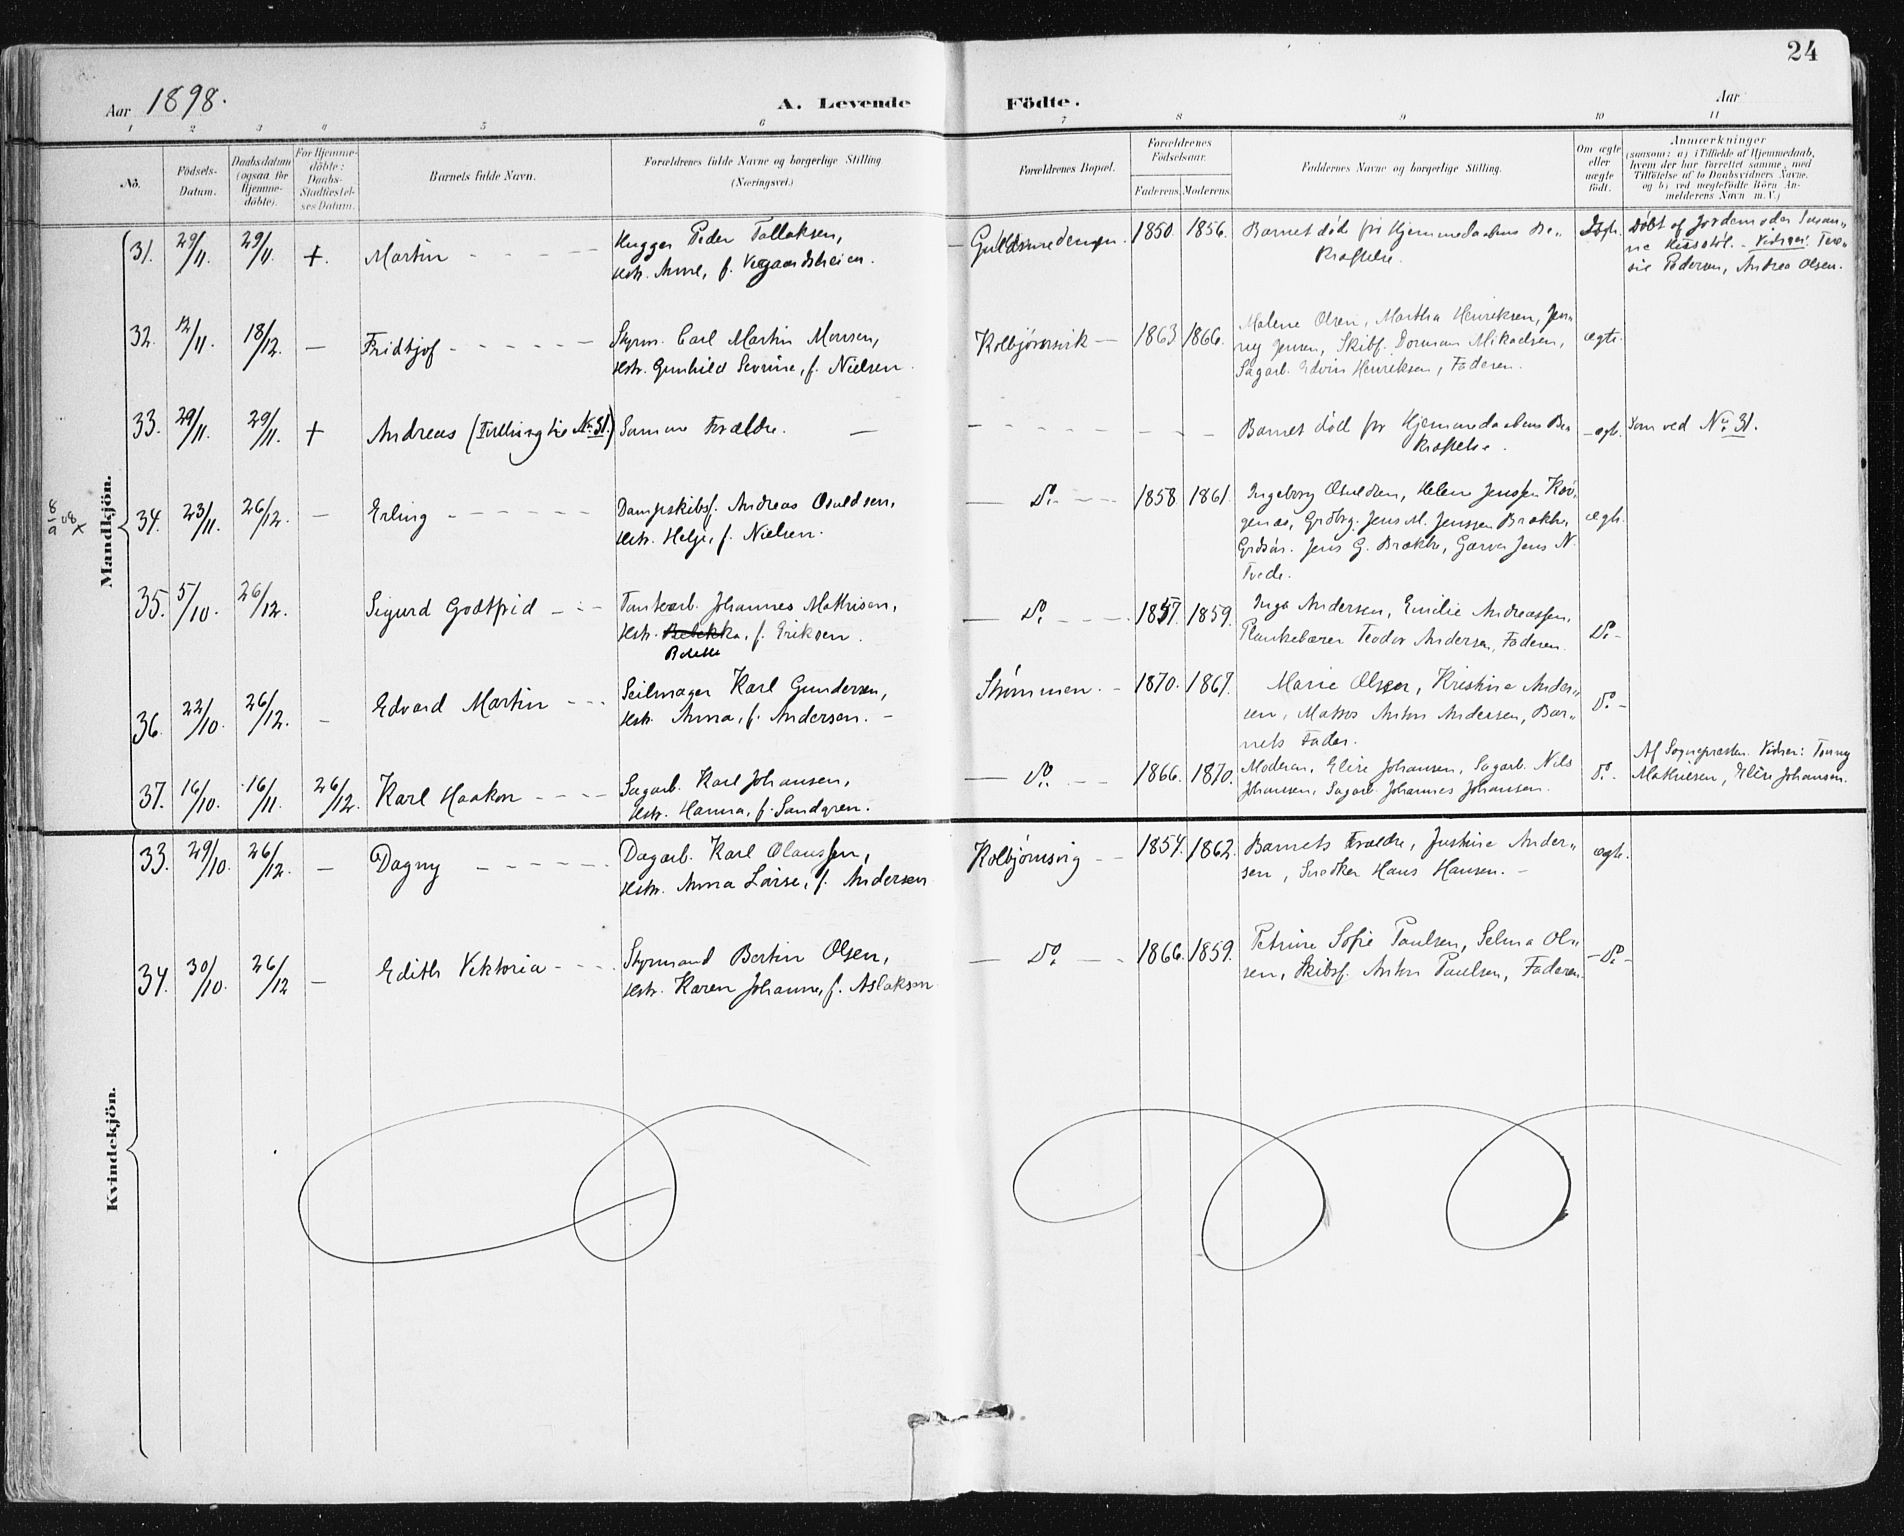 24
Aar 1898.
A. Levende Födte.
Aar
1 2 3 4 5 6 7 8 9 10 11
No.
Födsels-Datum.
Daabsdatum (ogsaa for Hjemme-döbte).
For Hjemme-döbte: Daabs-Stadfæstel-ses Datum.
Barnets fulde Navn.
Forældrenes fulde Navne og borgerlige Stilling (Næringsvei.)
Forældrenes Bopæl.
Forældrenes Födselsaar.
Faderens. Moderens.
Faddernes Navne og borgerlige Stilling.
Om ægte eller uægte födt.
Anmærkninger (saasom: a) i Tilfælde af Hjemmedaab, hvem der har forrettet samme, med Tilföielse af to Daabsvidners Navne. og b) ved uægtefödte Börn An-melderens Navn m.V.)
Mandkjön.
31. 29/11. 29/11. + Martin
Hugger Peder Tallaksen,
Hstr. Anne, f.
1850. 1856. Barnet död för Hjemmedaabens Be-
kræftelse.
Döbt af Jordemoder
Pedersen, Andrea Olsen.
32. 12/11. 18/12. — Fridtjof
Styrm. Carl Martin Monsen,
Hstr. Gunhild Sevrine, f. Nielsen.
Kolbjörnsvik — 1863 1866.
Malene Olsen, Martha Henriksen, Jen-
ny Jensen, Skibsf. Mikaelsen,
Sagarb. Edvin Henriksen, Faderen.
ægte.
33. 29/11. 29/11. + Andreas (Tvilling til No. 31.) Samme Forældre. —
Barnet död för Hjemmedaabens Be-
kræftelse.
ægt. Som ved No. 31.
8/9 08 x
34. 23/11. 26/12. — Erling
Dampskibsf. Andreas Osuldsen,
Hstr. Helje, f. Nielsen.
— Do. 1858. 1861.
Ingeborg Osuldsen, Helene Jenssen
Jens M. Jenssen Brække,
Jens G. Brække, Garver Jens N.
Tvede.
ægte.
35. 5/10. 26/12. Sigurd Godtfrid
Johannes Mathisen,
Hstr. Rebekka, f. Eriksen.
Bolette
— Do. 1857. 1859.
Inga Andersen, Emilie Andreassen,
Plankebærer Teodor Andersen, Faderen.
Do.
36. 22/10. 26/12. — Edvard Martin
Seilmager Karl Gundersen,
Hstr. Anna, f. Andersen. —
Strömmen. — 1870. 1867.
Marie Olsen, Kristine Ander-
sen, Matros Anton Andersen, Bar-
nets Fader.
Do.
37. 16/10. 16/11. 26/12. Karl Haakon
Sagarb. Karl Johansen,
Hstr. Hanna, f. Sandgren.
— Do. 1866. 1870.
Moderen, Elise Johansen, Sagarb. Nils
Johansen, Sagarb. Johannes Johansen.
Do.
Af Sognepræsten. Vidner: Tenny
Mathiesen, Elise Johansen.
Kvindekjön.
33. 29/10. 26/12. — Dagny
Dagarb. Karl Olaussen,
Hstr. Anna Lovise, f. Andersen
Kolbjörnsvig 1854. 1862.
Barnets Forældre, Justine Ander-
sen, Snedker Hans Hansen. —
ægte.
34. 30/10. 26/12 — Edith Viktoria
Styrmand Bertin Olsen,
Hstr. Karen Johanne, f. Aslaksen
— Do. 1866. 1859.
Petrine Sofie Paulsen, Selma Ol-
sen, Skibsf. Anton Paulsen, Faderen.
— Do. —